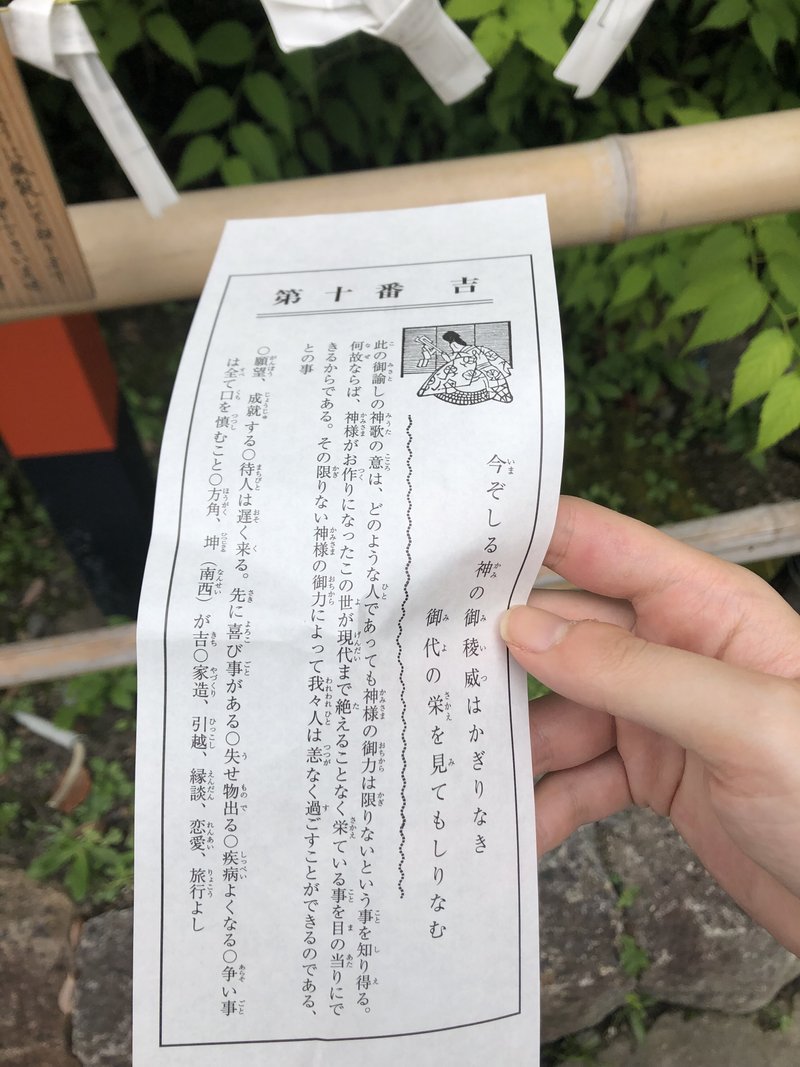 第十番 吉
今ぞしる神の御稜威はかぎりなき
御代の栄を見てもしりなむ
此の御諭しの神歌の意は、どのような人であっても神様の御力は限りないという事を知り得る。
何故ならば、神様がお作りになったこの世が現代まで絶えることなく栄ている事を目の当りにで
きるからである。その限りない神様の御力によって我々人は恙なく過ごすことができるのである、
との事
〇願望、成就する〇待人は遅く来る。先に喜び事がある〇失せ物出る〇疾病よくなる〇争い事
は全て口を慎むこと〇方角、坤（南西）が吉〇家造、引越、縁談、恋愛、旅行よし